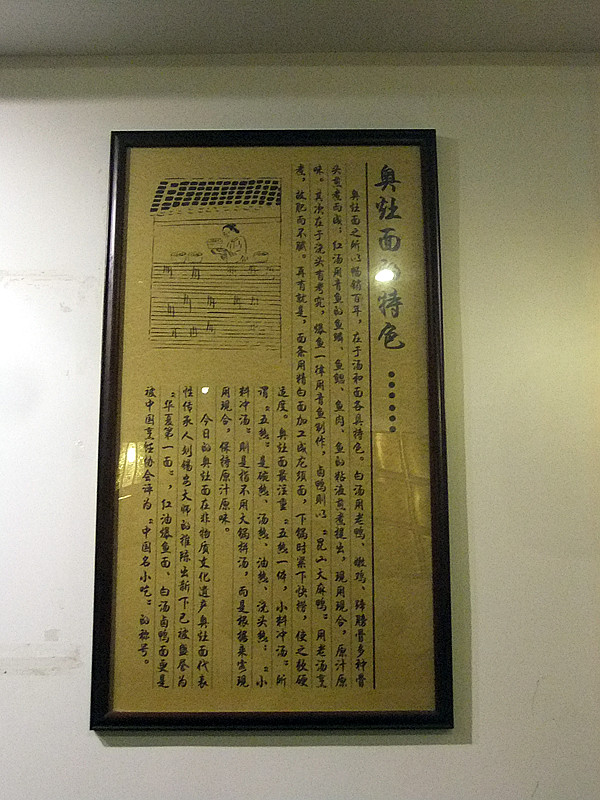 奥灶面的特色 ……
奥灶面之所以畅销百年，在于汤和面各具特色。白汤用老鸭、嫩鸡、蹄膀骨多种骨
头煎煮而成；红汤用青鱼的鱼鳞、鱼鳃、鱼肉、鱼的粘液煎煮提出，现用现合，原汁原
味。其次在于浇头有考究，爆鱼一律用青鱼制作，卤鸭则以“昆山大麻鸭”用老汤烹
煮，故肥而不腻。再有就是，面条用精白面加工成龙须面，下锅时紧下快捞，使之软硬
适度。奥灶面最注重“五热一体，小料冲汤”。所
谓“五热”是碗热、汤热、油热、浇头热；“小
料冲汤”则是指不用大锅拼汤，而是根据来客现
用现合，保持原汁原味。
今日的奥灶面在非物质文化遗产奥灶面代表
性传承人刘锡安大师的推陈出新下已被盛誉为
“华夏第一面”，红油爆鱼面、白汤卤鸭面更是
被中国烹饪协会评为“中国名小吃”的称号。